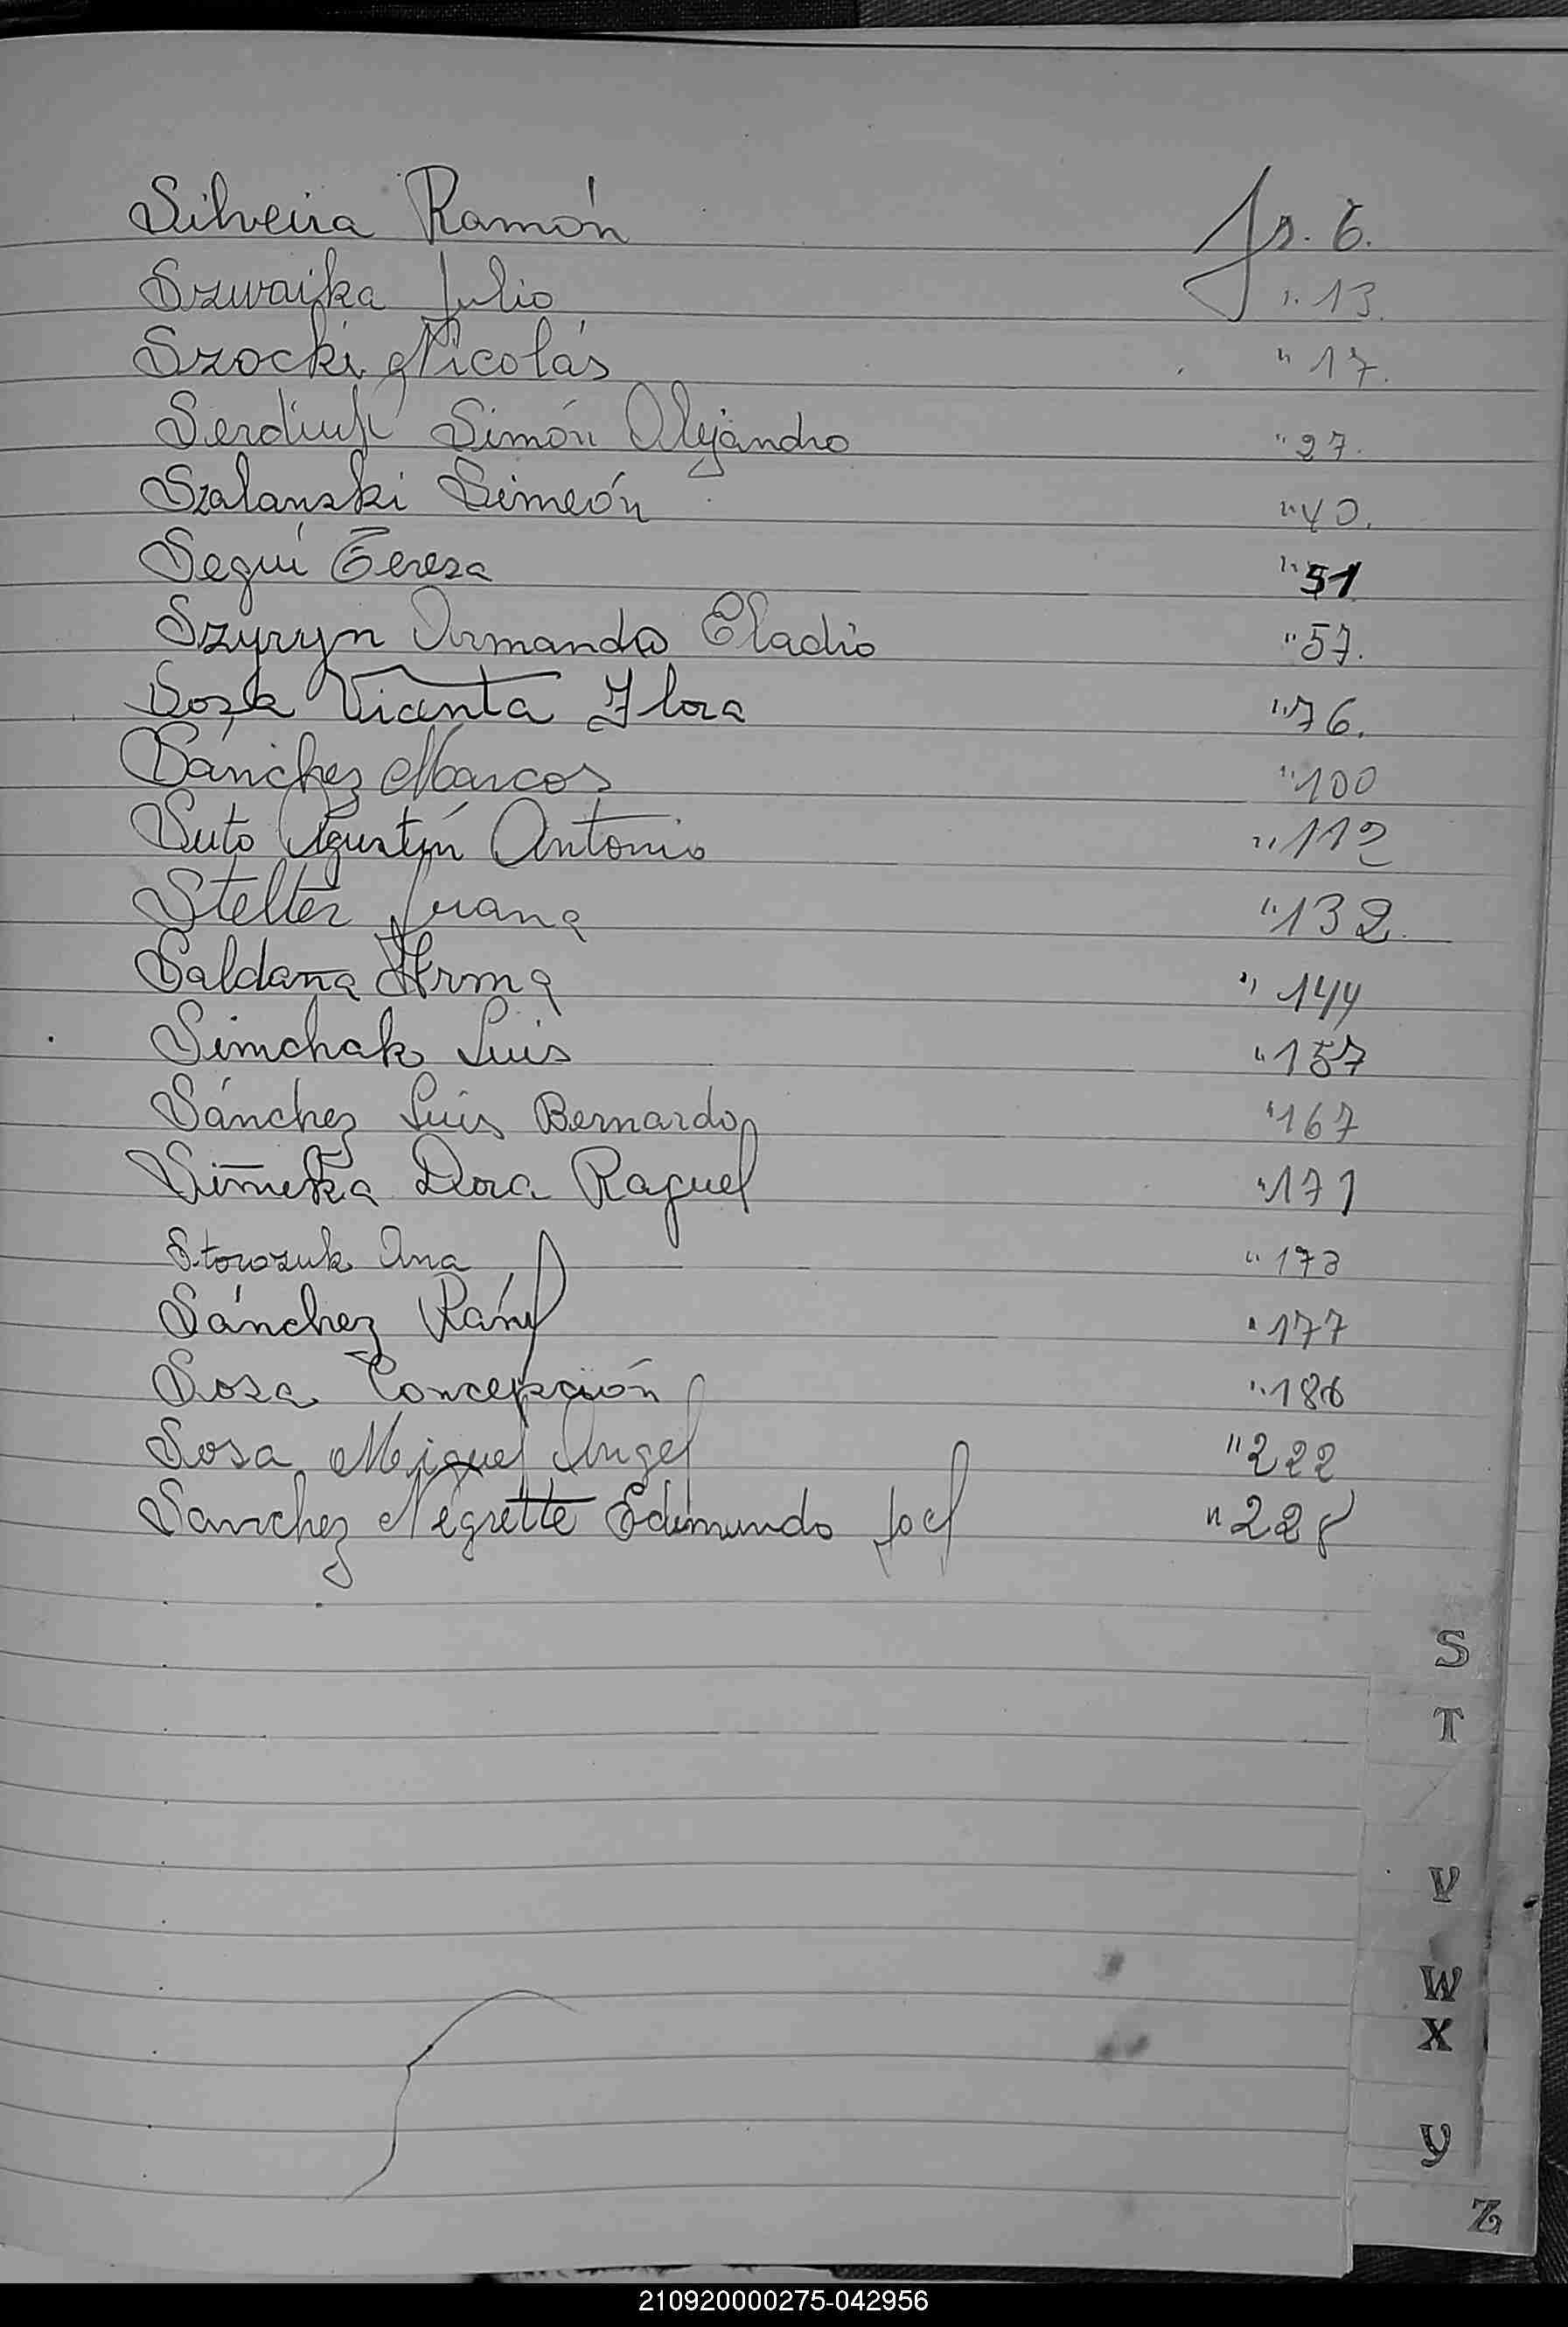 Silveira Ramón fs. 6.
Szwaika Julio " 13.
Szocki Nicolás " 17.
Serdiuk Simón Alejandro " 27.
Szalanski Simeón " 40.
Seguí Teresa " 51
Szyryn Armando Eladio " 57.
Sosa Vicenta Flora " 76.
Sánchez Marcos " 100
Suto Agustín Antonio " 112
Stelter Juana " 132.
Saldaña Irma " 144
Simchak Luis " 157
Sánchez Luis Bernardo " 167
Simetka Dora Raquel " 171
Storozuk Ana " 173
Sánchez Raúl " 177
Sosa Concepción " 186
Sosa Miguel Angel " 222
Sanchez Negrette Edimundo Joel " 228
S
T
V
W
X
Y
Z
210920000275-042956